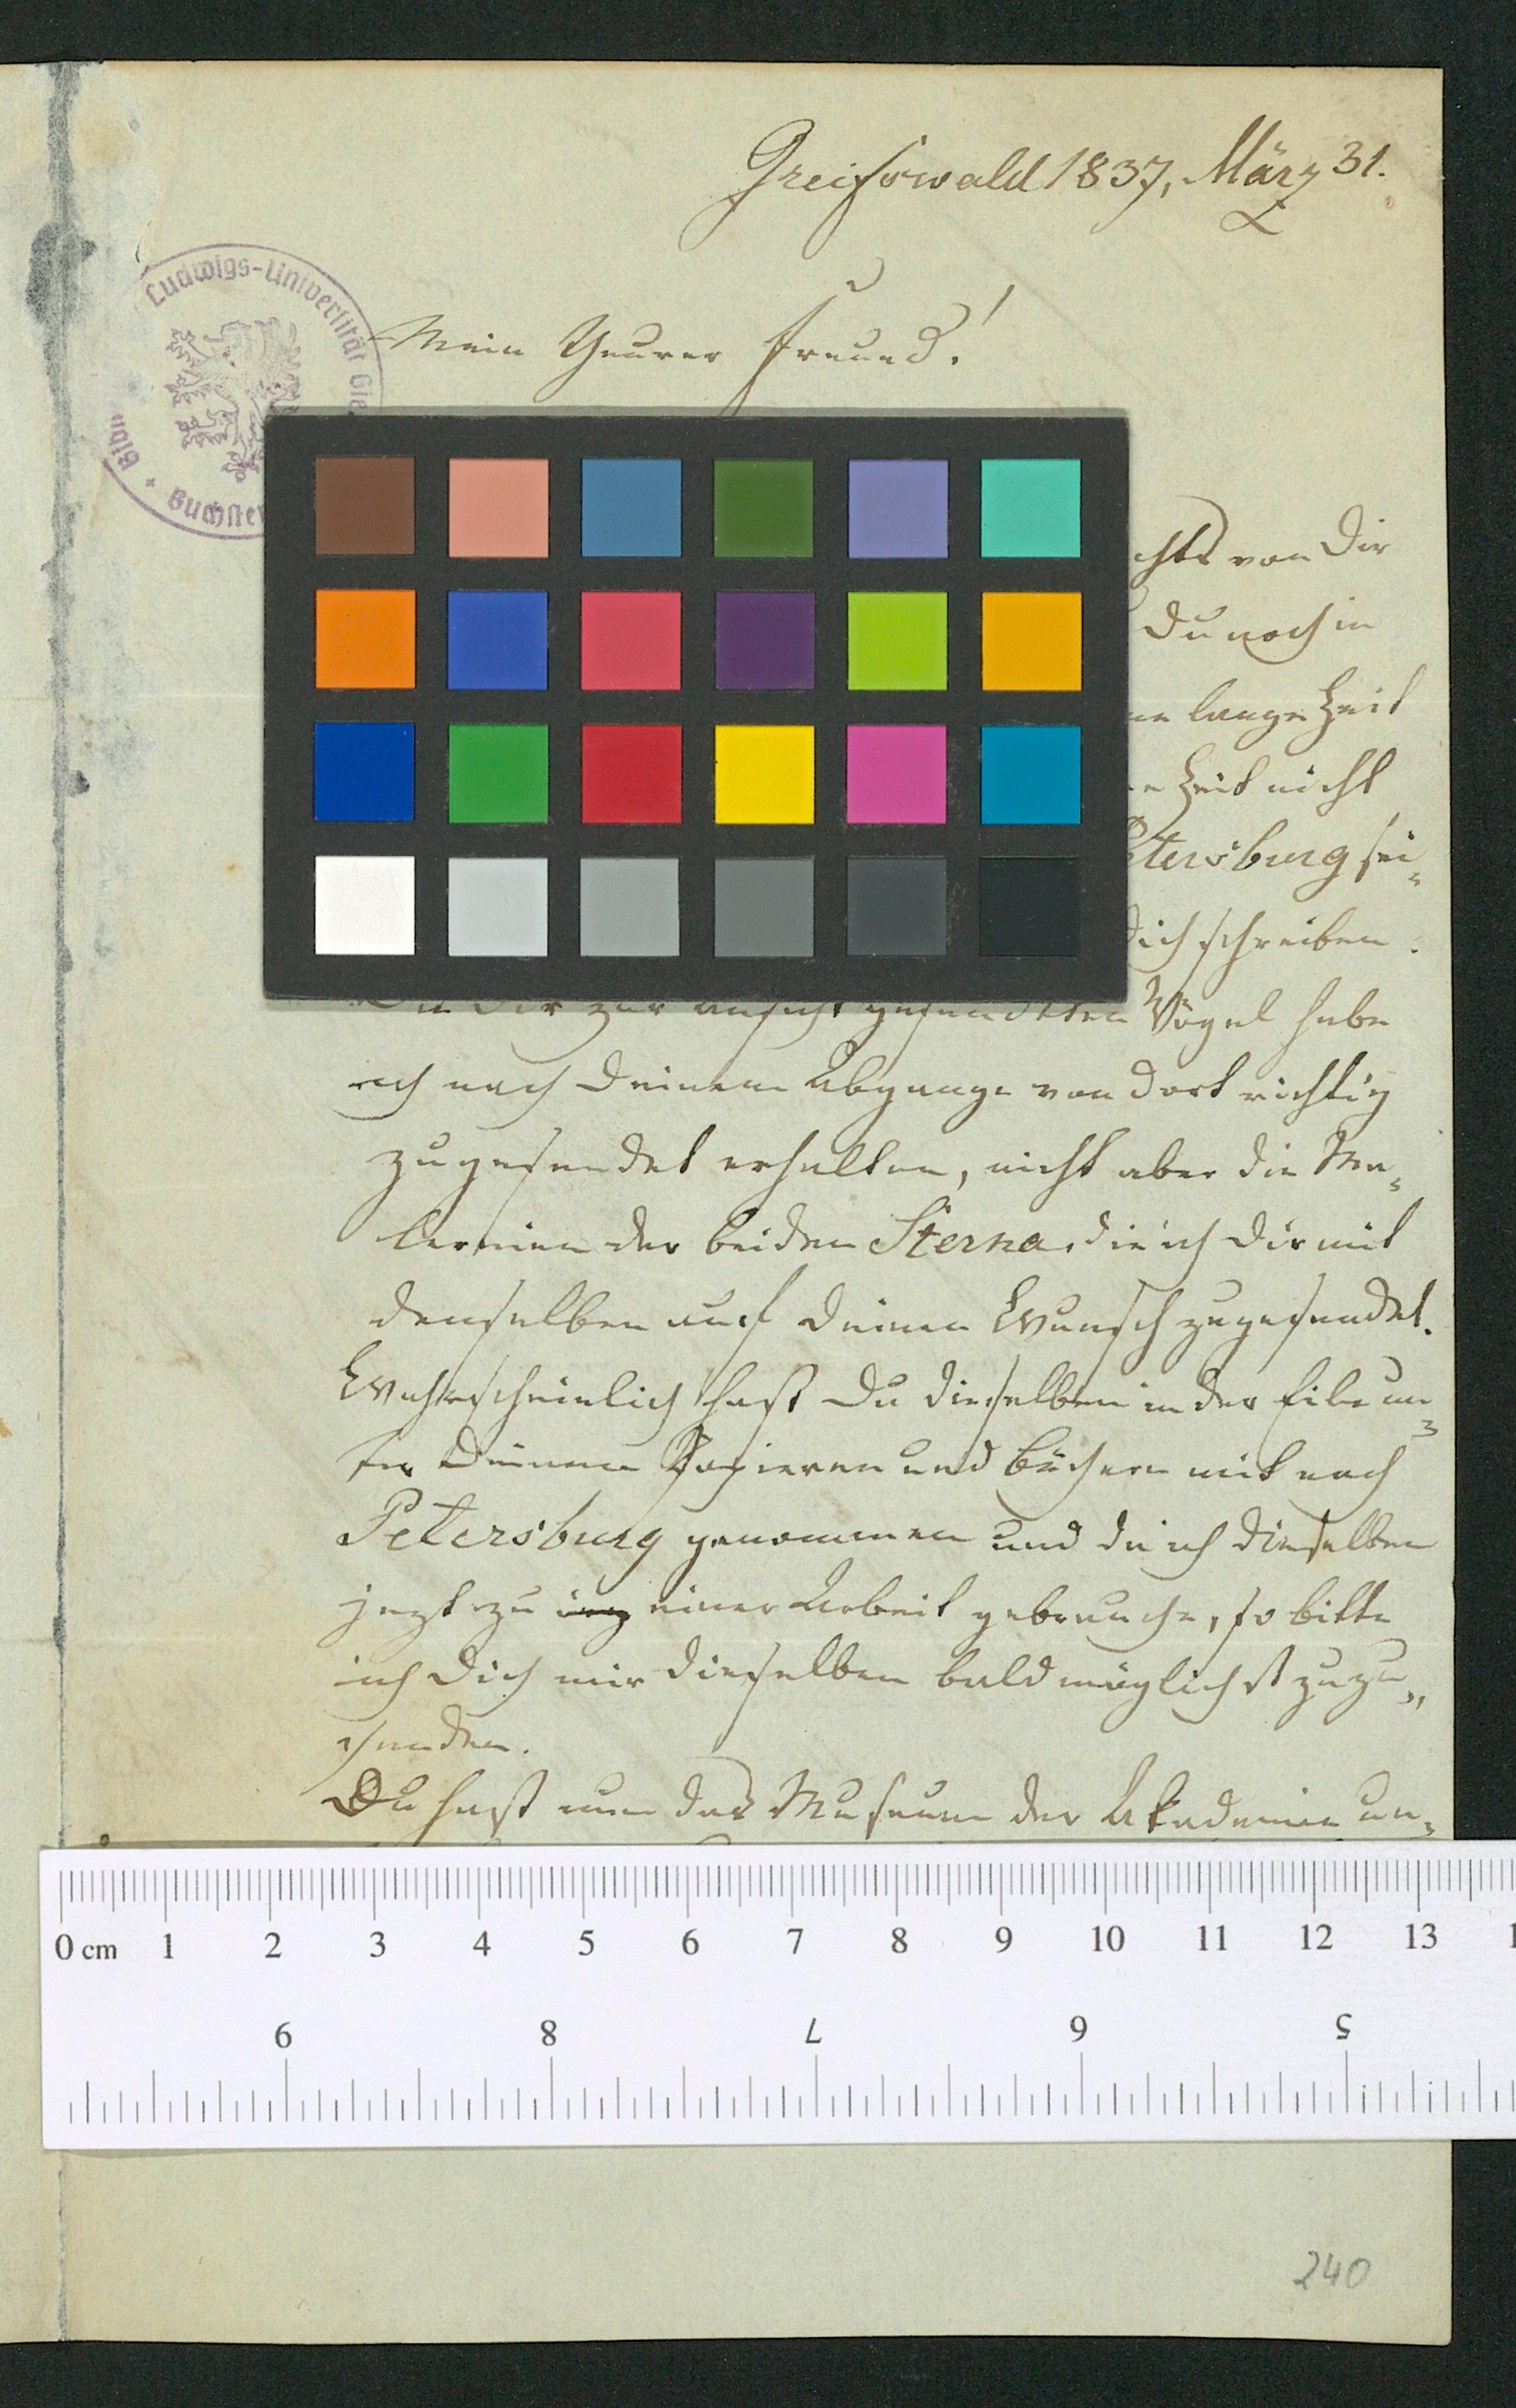 Greifswald 1837, März 31.
Ludwigs-Universität Gie
Mein Theurer Freund!
Bücherei
chts von Dir
Du noch in
lange Zeit
Zeit nicht
etersburg sei-
Dich schreiben.
Die Dir zur Ansicht gesendeten Vögel habe
ich nach Deinem Abgange von dort richtig
zugesendet erhalten, nicht aber die Ma-
lereien der beiden Sterna, die ich Dir mit
denselben auf Deinen Wunsch zugesendet.
Wahrscheinlich hast Du dieselben in der Eile un-
ter Deinen Papieren und Büchern mit nach
Petersburg genommen und da ich dieselben
jezt zu einer Arbeit gebrauche, so bitte
ich Dich mir dieselben baldmöglichst zuzu-
senden.
Du hast nun das Museum der Akademie un-
0 cm 1 2 3 4 5 6 7 8 9 10 11 12 13 1
9 8 7 6 5
240